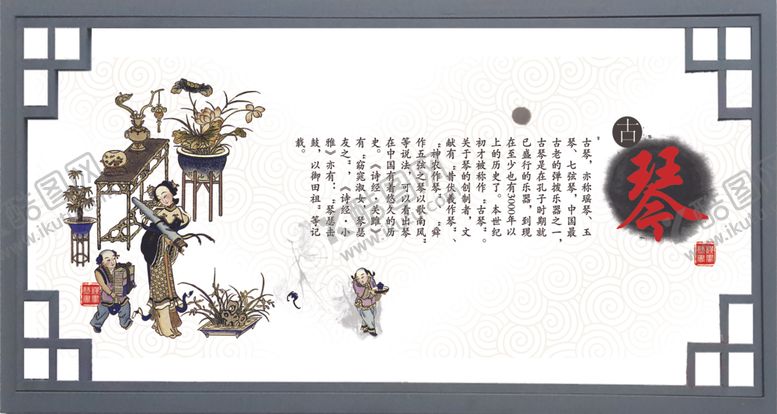 古
琴
古琴，亦称瑶琴、玉
琴、七弦琴，中国最
古老的弹拨乐器之一，
古琴是在孔子时期就
已盛行的乐器，到现
在至少也有3000年以
上的历史了。本世纪
初才被称作“古琴”。
关于琴的创制者，文
献有“昔伏羲作琴”、
“神农作琴”、“舜
作五弦之琴以歌南风”
等说法，可以看出琴
在中国有着悠久的历
史。《诗经·关雎》
有：“窈窕淑女，琴瑟
友之”，《诗经·小
雅》亦有：“琴瑟击
鼓，以御田祖”等记
载。